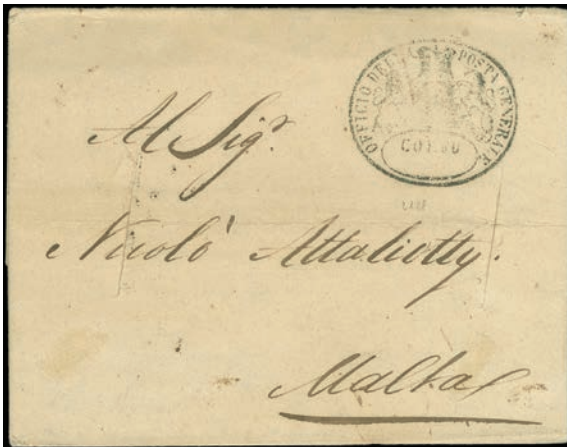 OFFICIO DELLA POSTA GENERALE
CORFU
Al Sigr.
Nicolò Attaliotty.
Malta